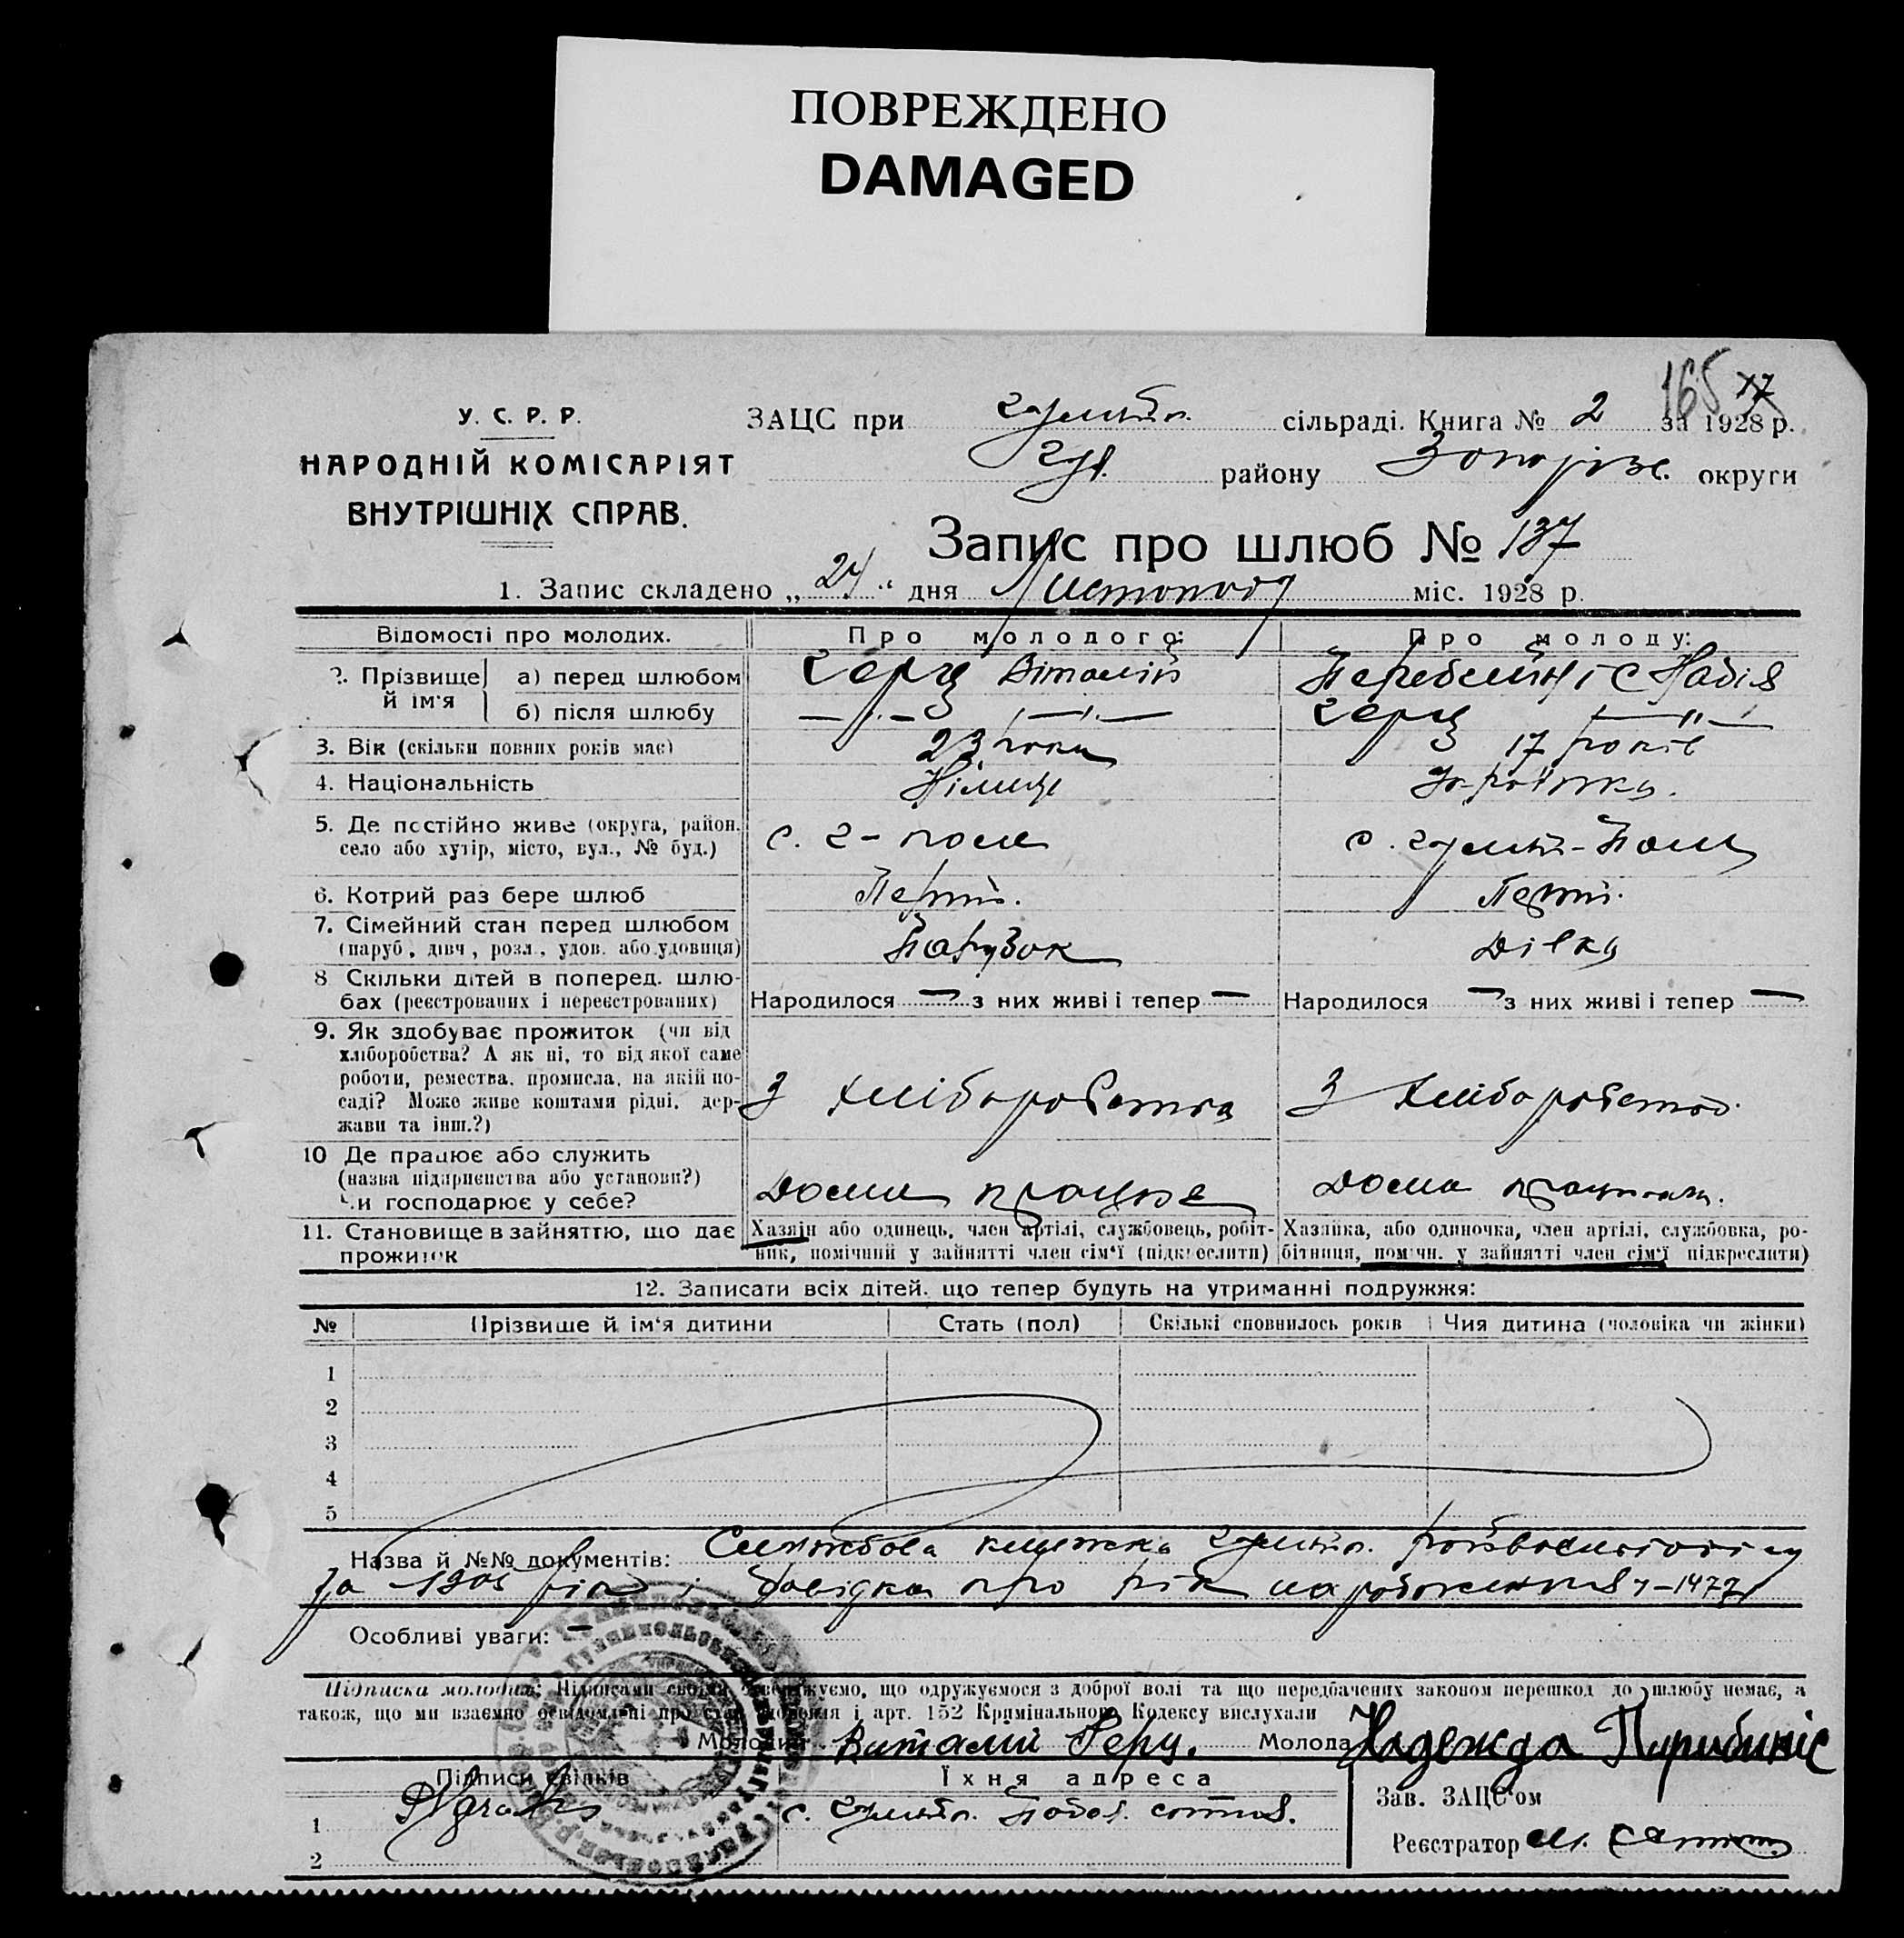 ПОВРЕЖДЕНО
DAMAGED
165 17
У. С. Р. Р.
НАРОДНІЙ КОМІСАРІЯТ
ВНУТРІШНІХ СПРАВ.
ЗАЦС при гуляйп. сільраді. Книга № 2 за 1928 р.
Гул. району Запоріз. округи
Запис про шлюб № 137
1. Запис складено „ 24 “ дня Листопада міс. 1928 р.
Відомості про молодих. Про молодого: Про молоду:
2. Прізвище й ім'я
а) перед шлюбом Герц Віталій Перебейніс Надія
б) після шлюбу — " — — " — Герц — " —
3. Вік (скільки повних років має) 23 роки 17 років
4. Національність Німець Украінка.
5. Де постійно живе (округа, район, село або хутір, місто, вул., № буд.) с. Г-поле с. Гуляй-Поле
6. Котрий раз бере шлюб Перш. Перш.
7. Сімейний стан перед шлюбом (паруб., дівч., розл., удов. або удовиця) Парубок Дівка
8 Скільки дітей в поперед. шлюбах (реєстрованих і нереєстрованих) Народилося — з них живі і тепер — Народилося — з них живі і тепер —
9. Як здобуває прожиток (чи від хліборобства? А як ні, то від якої саме роботи, ремества, промисла, на якій посаді? Може живе коштами рідні, держави та інш.?) З хліборобства З хліборобства
10 Де працює або служить (назва підприенства або установи?) Чи господарює у себе? Дома працює Дома працює.
11. Становище в зайняттю, що дає прожиток
Хазяїн або одинець, член артілі, службовець, робітник, помічний у зайнятті член сім'ї (підкреслити)
Хазяйка, або одиночка, член артілі, службовка, робітниця, помічн. у зайнятті член сім'ї підкреслити)
12. Записати всіх дітей. що тепер будуть на утриманні подружжя:
№ Прізвище й ім'я дитини Стать (пол) Скількі сповнилось років Чия дитина (чоловіка чи жінки)
1
2
3
4
5
Назва й №№ документів: Службова книжка гуляйп.
за 1905 рік і довідка про рік народження ч-1477
Особливі уваги: —
Підписка молодих: Підписами своїми стверджуємо, що одружуємося з доброї волі та що передбачених законом перешкод до шлюбу немає, а
також, що ми взаємно освідомлені про стан здоровля і арт. 152 Крямінального Кодексу вислухали
Молодий Виталий Герц. Молода Надежда Пирибиніс
Підписи свідків Їхня адреса
Зав. ЗАЦС'ом
1 с. Гуляйп.
Реєстратор
2